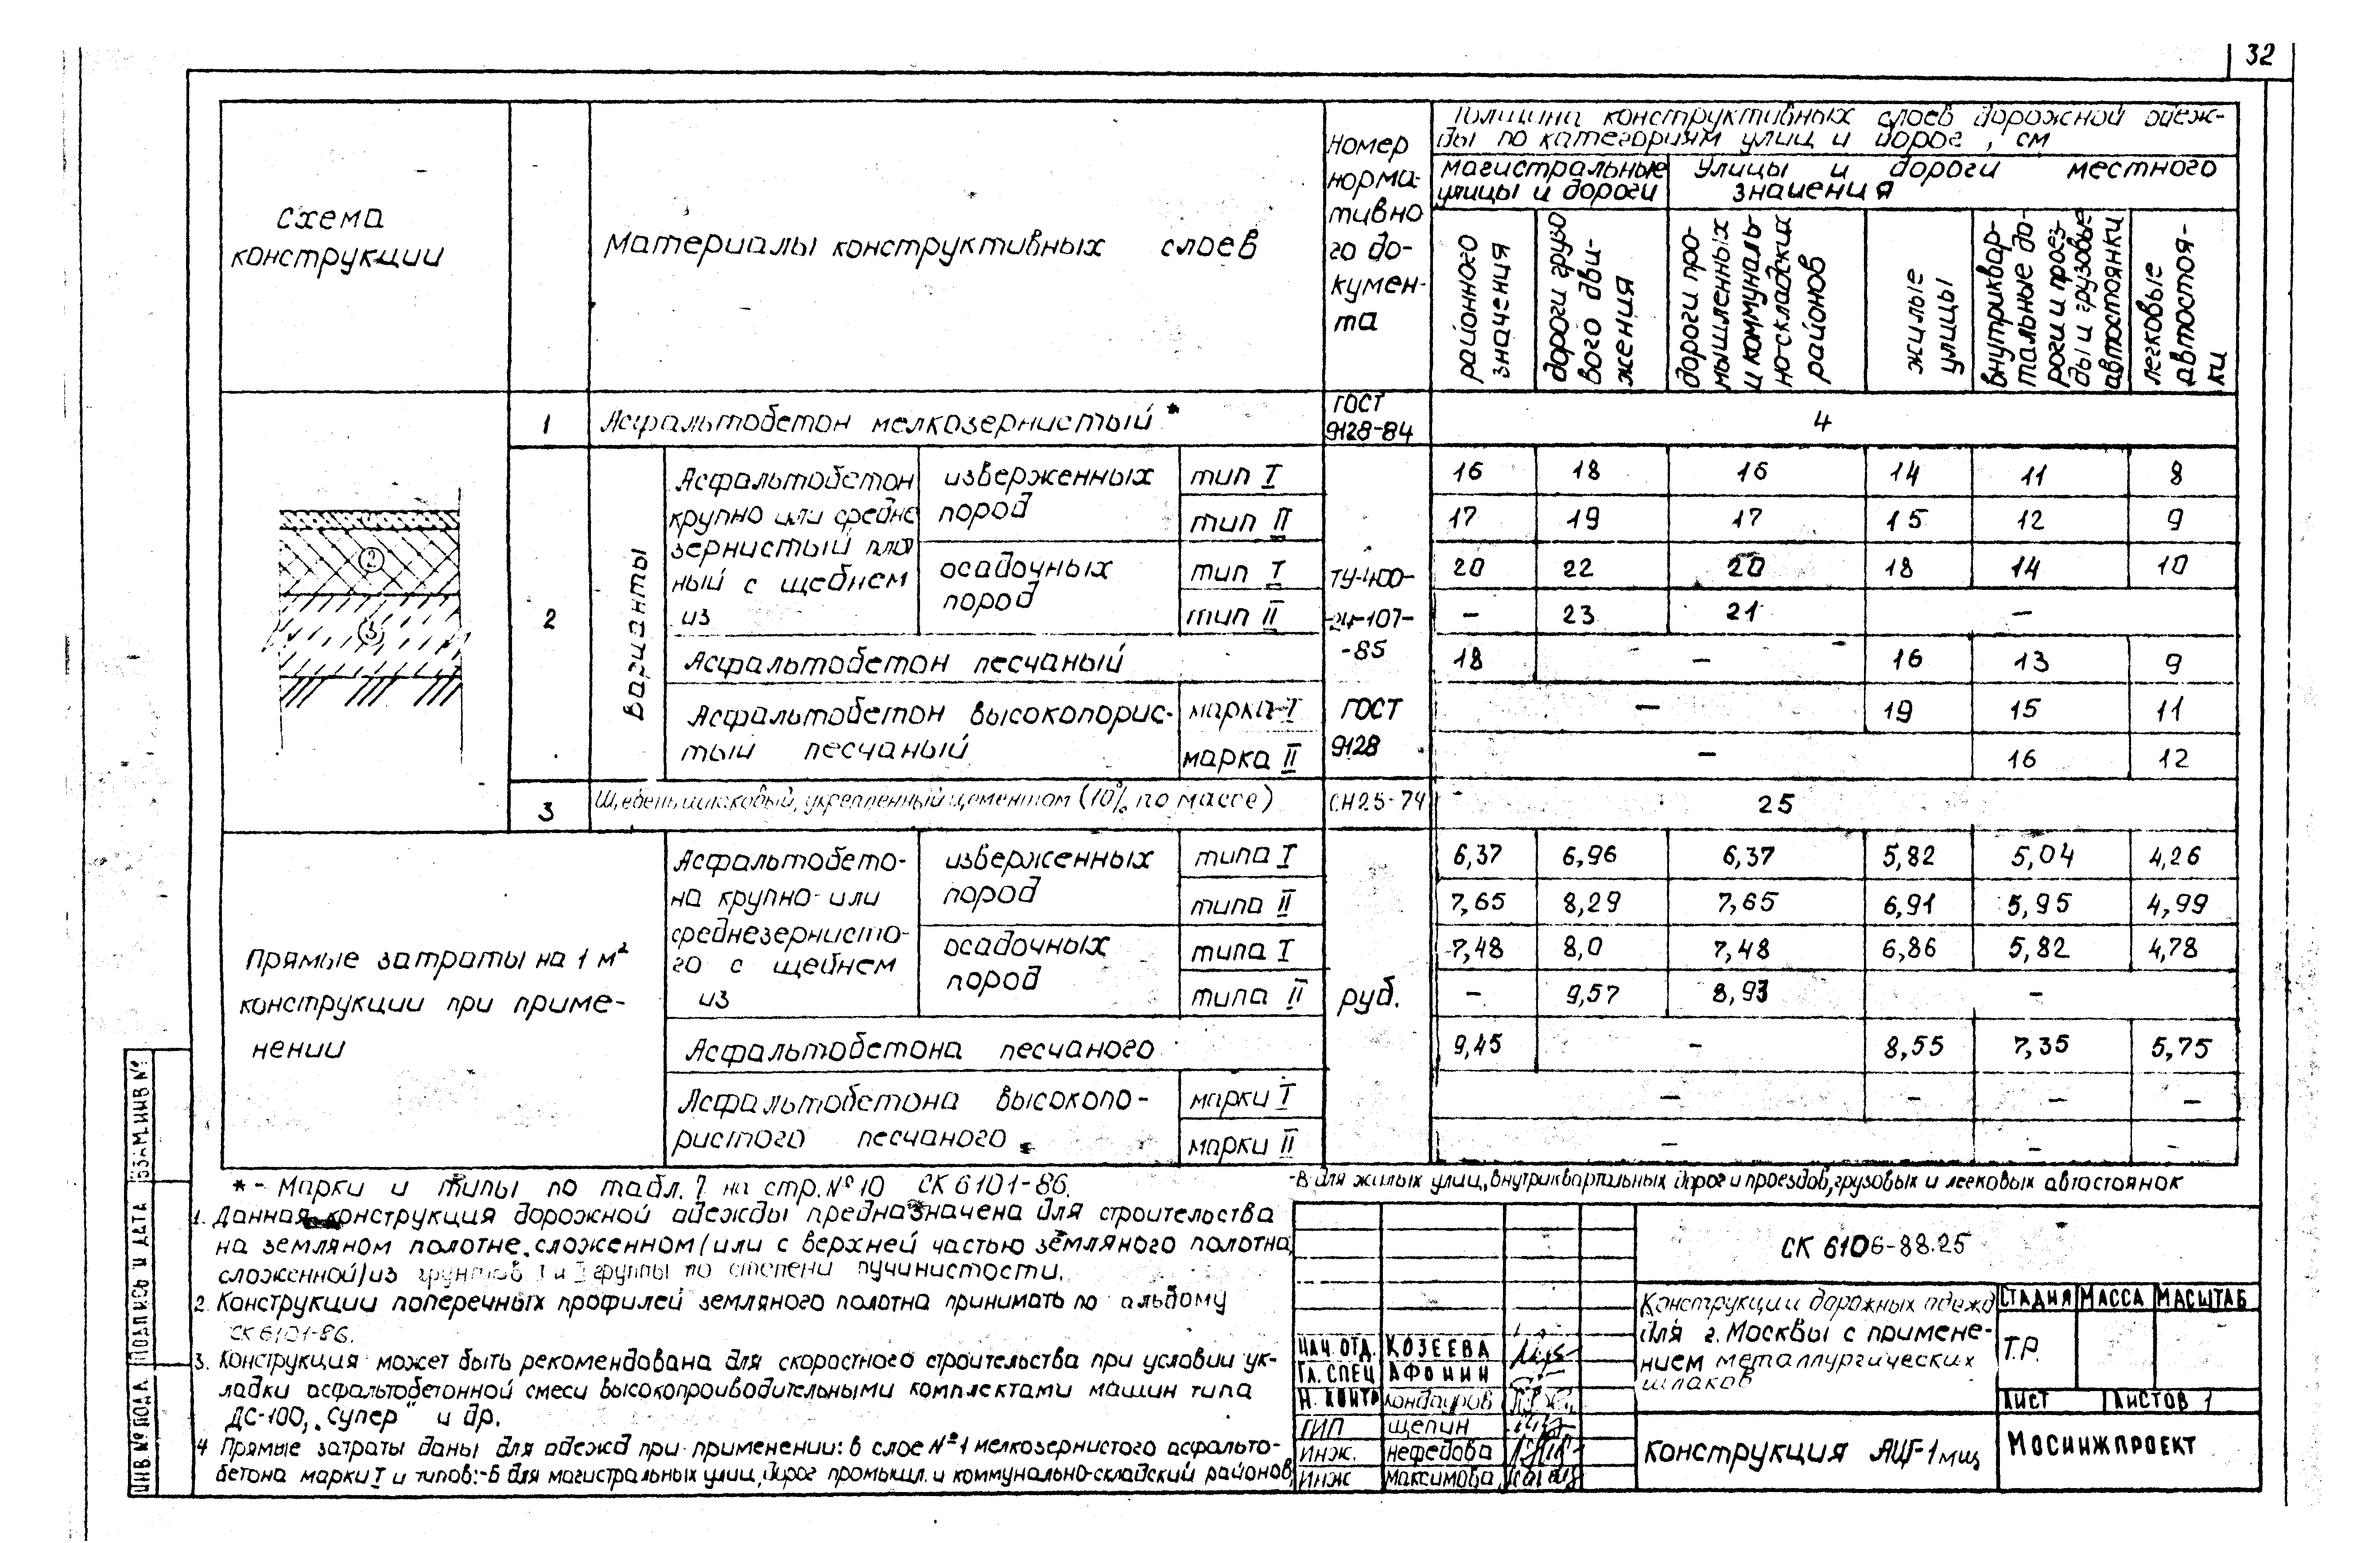 32
Схема
конструкции
Материалы конструктивных слоев
Номер
норма-
тивно
го до-
кумен-
та
Толщина конструктивных слоев дорожной одеж-
ды по категориям улиц и дорог, см
магистральные
улицы и дороги
Улицы и дороги местного
значения
районного
значения
дороги грузо
вого дви-
жения
дороги про-
мышленных
и коммуналь-
но-складских
районов
жилые
улицы
внутриквар-
тальные до-
роги и проез-
ды и грузовые
автостоянки
легковые
автостоя-
ки
1 Асфальтобетон мелкозернистый * ГОСТ 9128-84 4
2 Варианты
Асфальтобетон
крупно или средне
зернистый плот
ный с щебнем
из
изверженных
пород
тип I 16 18 16 14 11 8
тип II 17 19 17 15 12 9
осадочных
пород
тип I 20 22 20 18 14 10
тип II – 23 21 –
ТУ-400-
-24-107-
-85
Асфальтобетон песчаный 18 – 16 13 9
Асфальтобетон высокопорис-
тый песчаный
марка-I – 19 15 11
марка II – 16 12
ГОСТ
9128
3 Щебень шлаковый, укрепленный цементом (10% по массе) СН25-74 25
Прямые затраты на 1 м²
конструкции при приме-
нении
Асфальтобето-
на крупно- или
среднезернисто-
го с щебнем
из
изверженных
пород
типа I 6,37 6,96 6,37 5,82 5,04 4,26
типа II 7,65 8,29 7,65 6,91 5,95 4,99
осадочных
пород
типа I 7,48 8,0 7,48 6,86 5,82 4,78
типа II – 9,57 8,93 –
руб.
Асфальтобетона песчаного 9,45 – 8,55 7,35 5,75
Асфальтобетона высокопо-
ристого песчаного
марки I – – – –
марки II – – –
* - Марки и типы по табл. 7 на стр. № 10 СК 6101-86.
-В для жилых улиц, внутриквартальных дорог и проездов, грузовых и легковых автостоянок
1. Данная конструкция дорожной одежды предназначена для строительства
на земляном полотне, сложенном (или с верхней частью земляного полотна,
сложенной) из грунтов I и группы по степени пучинистости.
2. Конструкции поперечных профилей земляного полотна принимать по альбому
СК 6101-86.
3. Конструкция может быть рекомендована для скоростного строительства при условии ук-
ладки асфальтобетонной смеси высокопроизводительными комплектами машин типа
ДС-100, „Супер" и др.
4 Прямые затраты даны для одежд при применении: в слое №1 мелкозернистого асфальто-
бетона марки I и типов:-Б для магистральных улиц, дорог промышл. и коммунально-складский районов,
СК 6106-88.25
Конструкции дорожных одежд
для г. Москвы с примене-
нием металлургических
шлаков
СТАДИЯ МАССА МАСШТАБ
Т.Р.
ЛИСТ ЛИСТОВ 1
Конструкция АЦГ-1мщ
МОСИНЖПРОЕКТ
НАЧ. ОТД. КОЗЕЕВА
ГЛ. СПЕЦ АФОНИН
Н. КОНТР кондауров
ГИП щепин
ИНЖ. нефедова
ИНЖ максимова
ИНВ. № ПОДЛ ПОДПИСЬ И ДАТА ВЗАМ. ИНВ №